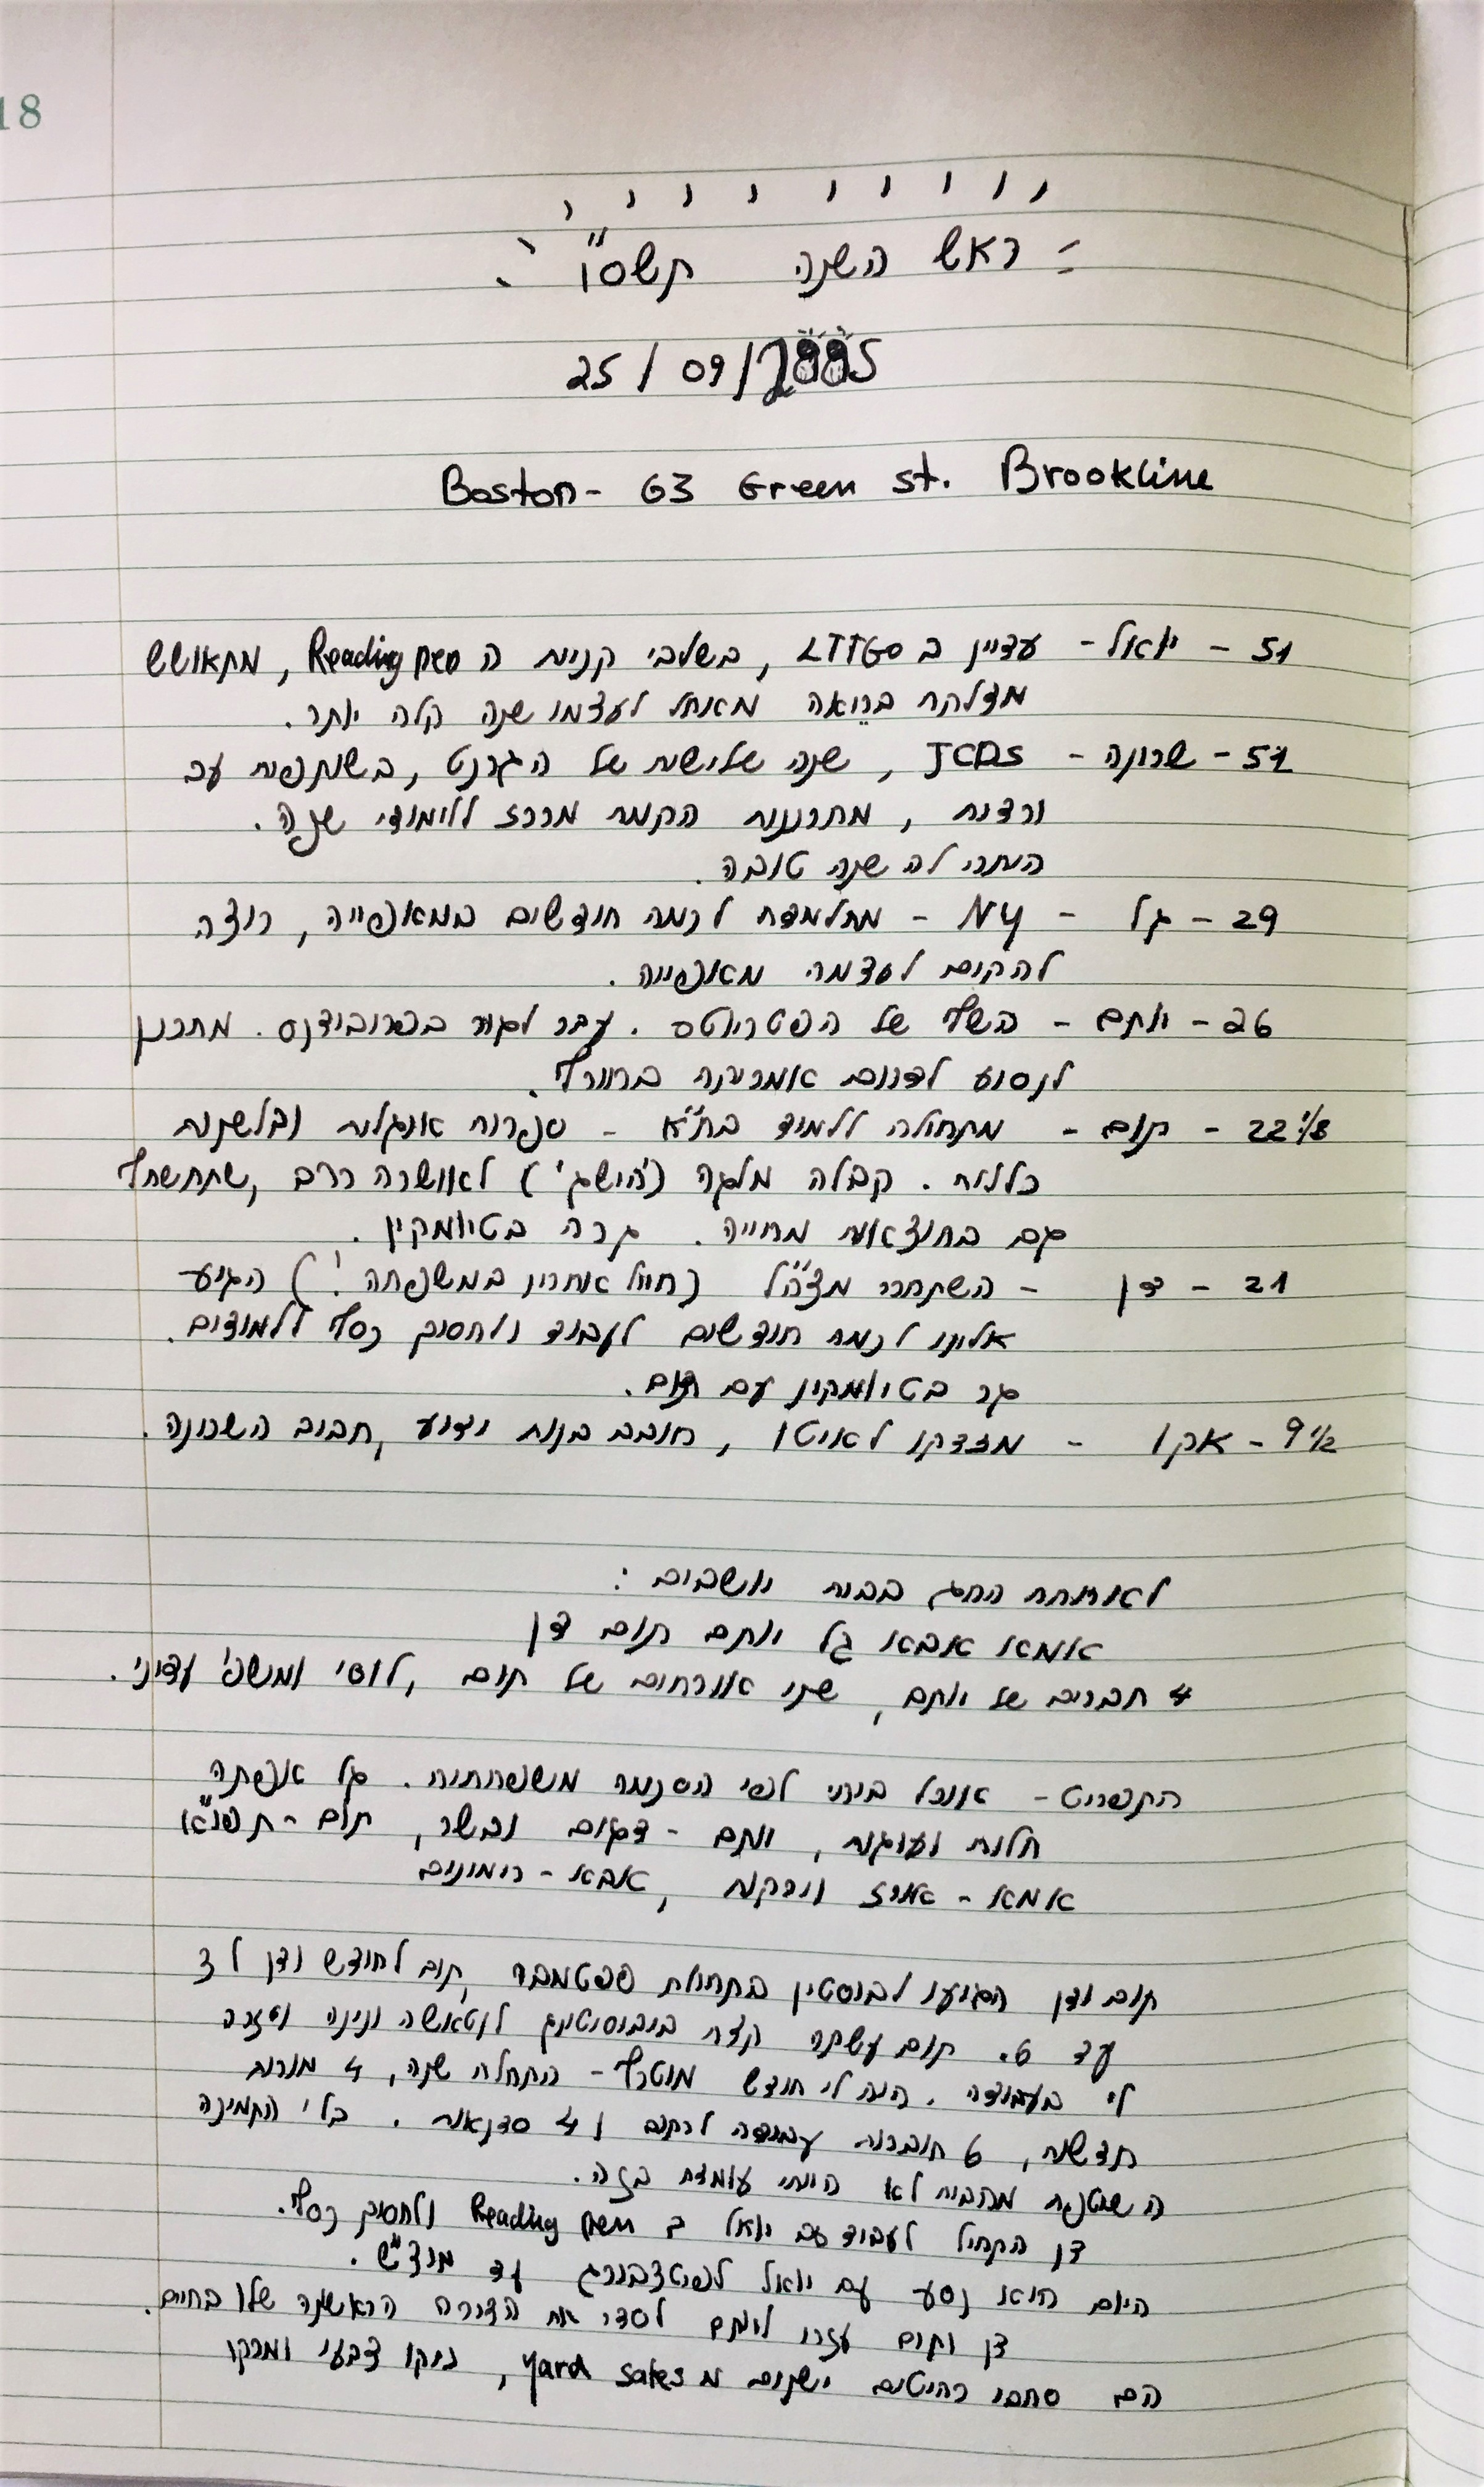 18
ראש השנה תשס"ו
25/09/2005
Boston - 63 Green st. Brookline
51 - יואל - עדיין ב LTTGO, בשלבי קניית ה Reading pen, מתאושש
מדלקת בריאה מאחל לעצמו שנה קלה יותר.
51 - שרונה - JCDS, שנה שלישית של הגרנט, בשותפות עם
ורדית, מתכננות הקמת מרכז ללימודי שפה.
הייתה לה שנה טובה.
29 - גל - NY - מתלמדת לכמה חודשים במאפייה, רוצה
להקים לעצמה מאפייה.
26 - יותם - השף של הפטריוטס. עבר לגור בפרובידנס. מתכנן
לנסוע לדרום אמריקה בחורף.
22 1/8 - תום - מתחילה ללמוד בת"א - ספרות אנגלית ובלשנות
כללית. קבלה מלגה ('הישג') לאושרה הרב, שתשתף
גם בהוצאות מחייה. גרה בטיומקין.
21 - דן - השתחרר מצה"ל (חייל אחרון במשפחה!) הגיע
אלינו לכמה חודשים לעבוד ולחסוך כסף ללמודים.
גר בטיומקין עם תום.
9 1/2 - אקו - מזדקן לאיטו, חובב בנות ידוע, חביב השכונה.
לארוחת החג בבית יושבים:
אמא אבא גל יותם תום דן
4 חברים של יותם, שני אורחים של תום, לוסי ומשפ' עדיני.
התפריט - אוכל ביתי לפי הסכמה משפחתית. גל אפתה
חלות ועוגות, יותם - דגים ובשר, תום - תפוא"
אמא - אורז וירקות, אבא - רימונים
תום ודן הגיעו לבוסטון בתחילת ספטמבר, תום לחודש ודן ל 3
עד 6. תום עשתה קצת בייביסיטינג לנטאשה ונינה ועזרה
לי בעבודה. היה לי חודש מוטרף - התחלת שנה, 4 מורות
חדשות, 6 חוברות עבודה לכתוב ו 4 סדנאות. בלי התמיכה
השוטפת מהבית לא הייתי עומדת בזה.
דן התחיל לעבוד עם יואל ב Reading pen ולחסוך כסף.
היום הוא נסע עם יואל לפיטצבורג עד מוצ"ש.
דן ותום עזרו ליותם לסדר את הדירה הראשונה שלו בחיים.
הם סחבו רהיטים ישנים מ yard sales, ניקו צבעו ומרקו